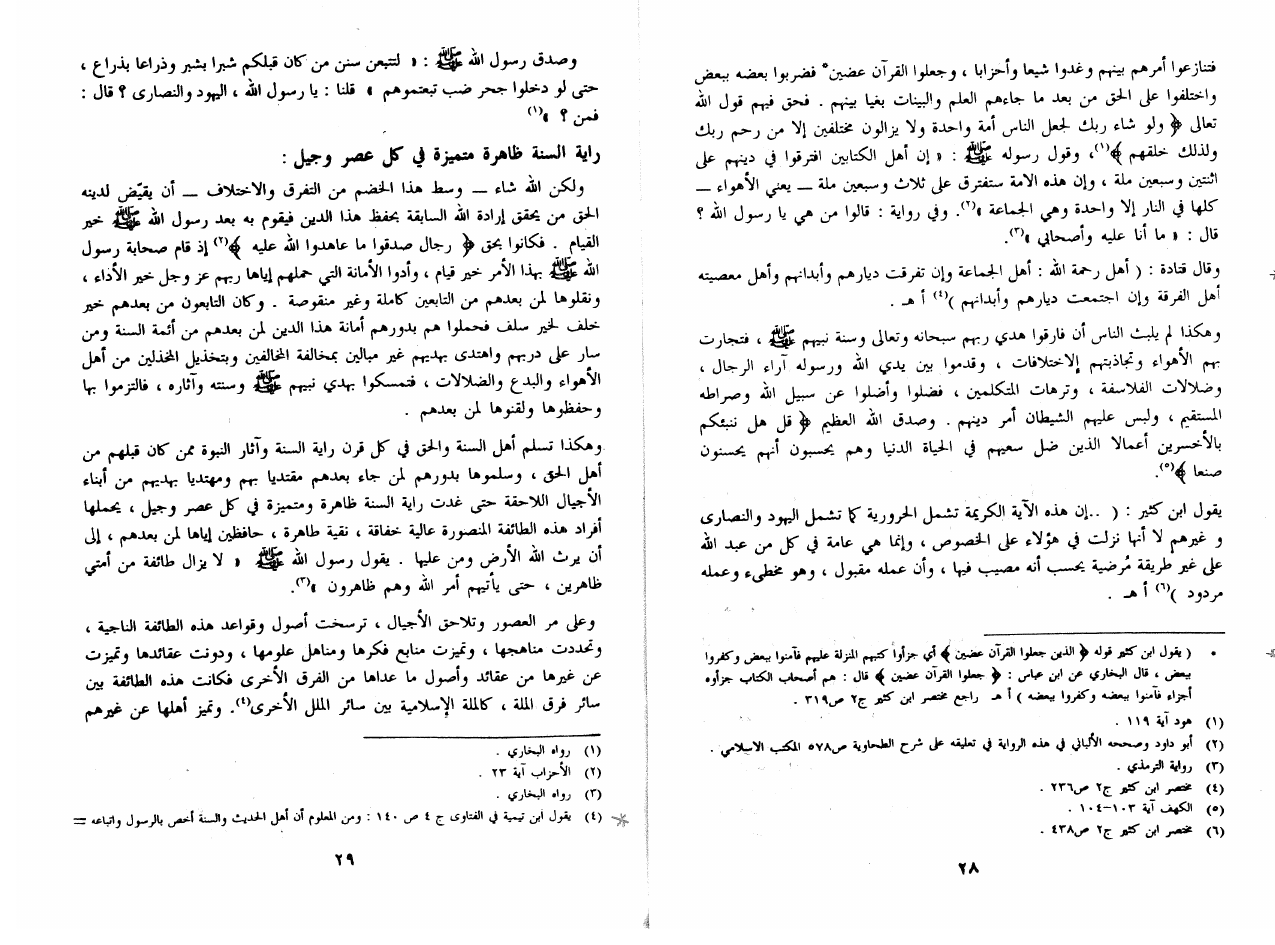 فتنازعوا أمرهم بينهم وغدوا شيعا وأحزابا ، وجعلوا القرآن عضين* فضربوا بعضه ببعض
واختلفوا على الحق من بعد ما جاءهم العلم والبينات بغيا بينهم . فحق فيهم قول الله
تعالى ﴿ ولو شاء ربك لجعل الناس أمة واحدة ولا يزالون مختلفين إلا من رحم ربك
ولذلك خلقهم ﴾(١)، وقول رسوله ﷺ : « إن أهل الكتابين افترقوا في دينهم على
اثنتين وسبعين ملة ، وإن هذه الامة ستفترق على ثلاث وسبعين ملة ــ يعني الأهواء ــ
كلها في النار إلا واحدة وهي الجماعة »(٢). وفي رواية : قالوا من هي يا رسول الله ؟
قال : « ما أنا عليه وأصحابي »(٣).
وقال قتادة : ( أهل رحمة الله : أهل الجماعة وإن تفرقت ديارهم وأبدانهم وأهل معصيته
أهل الفرقة وإن اجتمعت ديارهم وأبدانهم )(٤) أ هـ .
وهكذا لم يلبث الناس أن فارقوا هدي ربهم سبحانه وتعالى وسنة نبيهم ﷺ ، فتجارت
بهم الأهواء وتجاذبتهم الاختلافات ، وقدموا بين يدي الله ورسوله آراء الرجال ،
وضلالات الفلاسفة ، وترهات المتكلمين ، فضلوا وأضلوا عن سبيل الله وصراطه
المستقيم ، ولبس عليهم الشيطان أمر دينهم . وصدق الله العظيم ﴿ قل هل ننبئكم
بالأخسرين أعمالا الذين ضل سعيهم في الحياة الدنيا وهم يحسبون أنهم يحسنون
صنعا ﴾(٥).
يقول ابن كثير : ( ..إن هذه الآية الكريمة تشمل الحرورية كما تشمل اليهود والنصارى
و غيرهم لا أنها نزلت في هؤلاء على الخصوص ، وإنما هي عامة في كل من عبد الله
على غير طريقة مُرضية يحسب أنه مصيب فيها ، وأن عمله مقبول ، وهو مخطىء وعمله
مردود )(٦) أ هـ .
• ( يقول ابن كثير قوله ﴿ الذين جعلوا القرآن عضين ﴾ أي جزأوا كتبهم المنزلة عليهم فآمنوا ببعض وكفروا
ببعض ، قال البخاري عن ابن عباس : ﴿ جعلوا القرآن عضين ﴾ قال : هم أصحاب الكتاب جزأوه
أجزاء فآمنوا ببعضه وكفروا ببعضه ) أ هـ راجع مختصر ابن كثير ج٢ ص٣١٩ .
(١) هود آية ١١٩ .
(٢) أبو داود وصححه الألباني في هذه الرواية في تعليقه على شرح الطحاوية ص٥٧٨ المكتب الاسلامي .
(٣) رواية الترمذي .
(٤) مختصر ابن كثير ج٢ ص٢٣٦ .
(٥) الكهف آية ١٠٣-١٠٤ .
(٦) مختصر ابن كثير ج٢ ص٤٣٨ .
٢٨
وصدق رسول الله ﷺ : « لتتبعن سنن من كان قبلكم شبرا بشبر وذراعا بذراع ،
حتى لو دخلوا جحر ضب تبعتموهم » قلنا : يا رسول الله ، اليهود والنصارى ؟ قال :
فمن ؟ »(١)
راية السنة ظاهرة متميزة في كل عصر وجيل :
ولكن الله شاء ــ وسط هذا الخضم من التفرق والاختلاف ــ أن يقيّض لدينه
الحق من يحقق إرادة الله السابقة بحفظ هذا الدين فيقوم به بعد رسول الله ﷺ خير
القيام . فكانوا بحق ﴿ رجال صدقوا ما عاهدوا الله عليه ﴾(٢) إذ قام صحابة رسول
الله ﷺ بهذا الأمر خير قيام ، وأدوا الأمانة التي حملهم إياها ربهم عز وجل خير الأداء ،
ونقلوها لمن بعدهم من التابعين كاملة وغير منقوصة . وكان التابعون من بعدهم خير
خلف لخير سلف فحملوا هم بدورهم أمانة هذا الدين لمن بعدهم من أئمة السنة ومن
سار على دربهم واهتدى بهديهم غير مبالين بمخالفة المخالفين وبتخذيل المخذلين من أهل
الأهواء والبدع والضلالات ، فتمسكوا بهدي نبيهم ﷺ وسنته وآثاره ، فالتزموا بها
وحفظوها ولقنوها لمن بعدهم .
وهكذا تسلم أهل السنة والحق في كل قرن راية السنة وآثار النبوة ممن كان قبلهم من
أهل الحق ، وسلموها بدورهم لمن جاء بعدهم مقتديا بهم ومهتديا بهديهم من أبناء
الأجيال اللاحقة حتى غدت راية السنة ظاهرة ومتميزة في كل عصر وجيل ، يحملها
أفراد هذه الطائفة المنصورة عالية خفاقة ، نقية طاهرة ، حافظين إياها لمن بعدهم ، إلى
أن يرث الله الأرض ومن عليها . يقول رسول الله ﷺ « لا يزال طائفة من أمتي
ظاهرين ، حتى يأتيهم أمر الله وهم ظاهرون »(٣).
وعلى مر العصور وتلاحق الأجيال ، ترسخت أصول وقواعد هذه الطائفة الناجية ،
وتحددت مناهجها ، وتميزت منابع فكرها ومناهل علومها ، ودونت عقائدها وتميزت
عن غيرها من عقائد وأصول ما عداها من الفرق الأخرى فكانت هذه الطائفة بين
سائر فرق الملة ، كالملة الإسلامية بين سائر الملل الأخرى(٤). وتميز أهلها عن غيرهم
(١) رواه البخاري .
(٢) الأحزاب آية ٢٣ .
(٣) رواه البخاري .
(٤) يقول ابن تيمية في الفتاوى ج ٤ ص ١٤٠ : ومن المعلوم أن أهل الحديث والسنة أخص بالرسول واتباعه =
٢٩